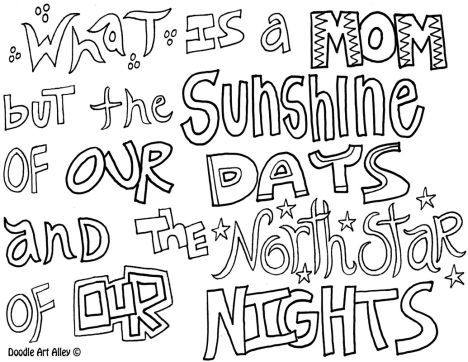 What IS a MOM
but the Sunshine
OF OUR DAYS
and THE North Star
OF OUR NIGHTS
Doodle Art Alley ©